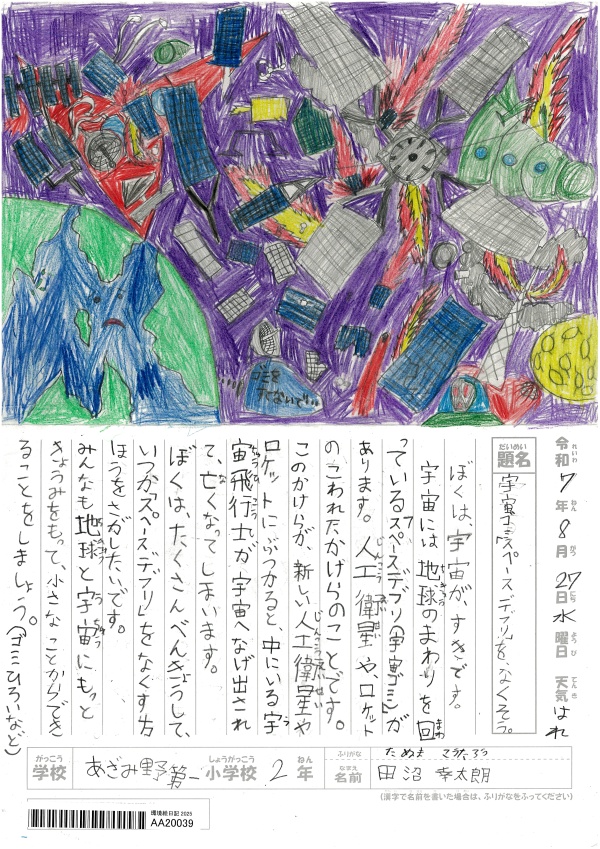 ゴミを
すてないで…
令和7年8月27日水曜日 天気 はれ
題名 宇宙ゴミ「スペースデブリ」を、なくそう。
ぼくは、宇宙が、すきです。
宇宙には地球のまわりを回
っているスペースデブリ(宇宙ゴミ)が
あります。人工衛星や、ロケット
のこわれたかけらのことです。
このかけらが、新しい人工衛星や
ロケットにぶつかると、中にいる宇
宙飛行士が宇宙へなげ出され
て、亡くなってしまいます。
ぼくは、たくさんべんきょうして、
いつか「スペースデブリ」をなくす方
ほうをさがしたいです。
みんなも地球と宇宙にもっと
きょうみをもって、小さなことからでき
ることをしましょう。(ゴミひろいなど)
学校 あざみ野第一小学校 2年
名前 田沼 幸太朗
(漢字で名前を書いた場合は、ふりがなをふってください)
環境絵日記 2025
AA20039